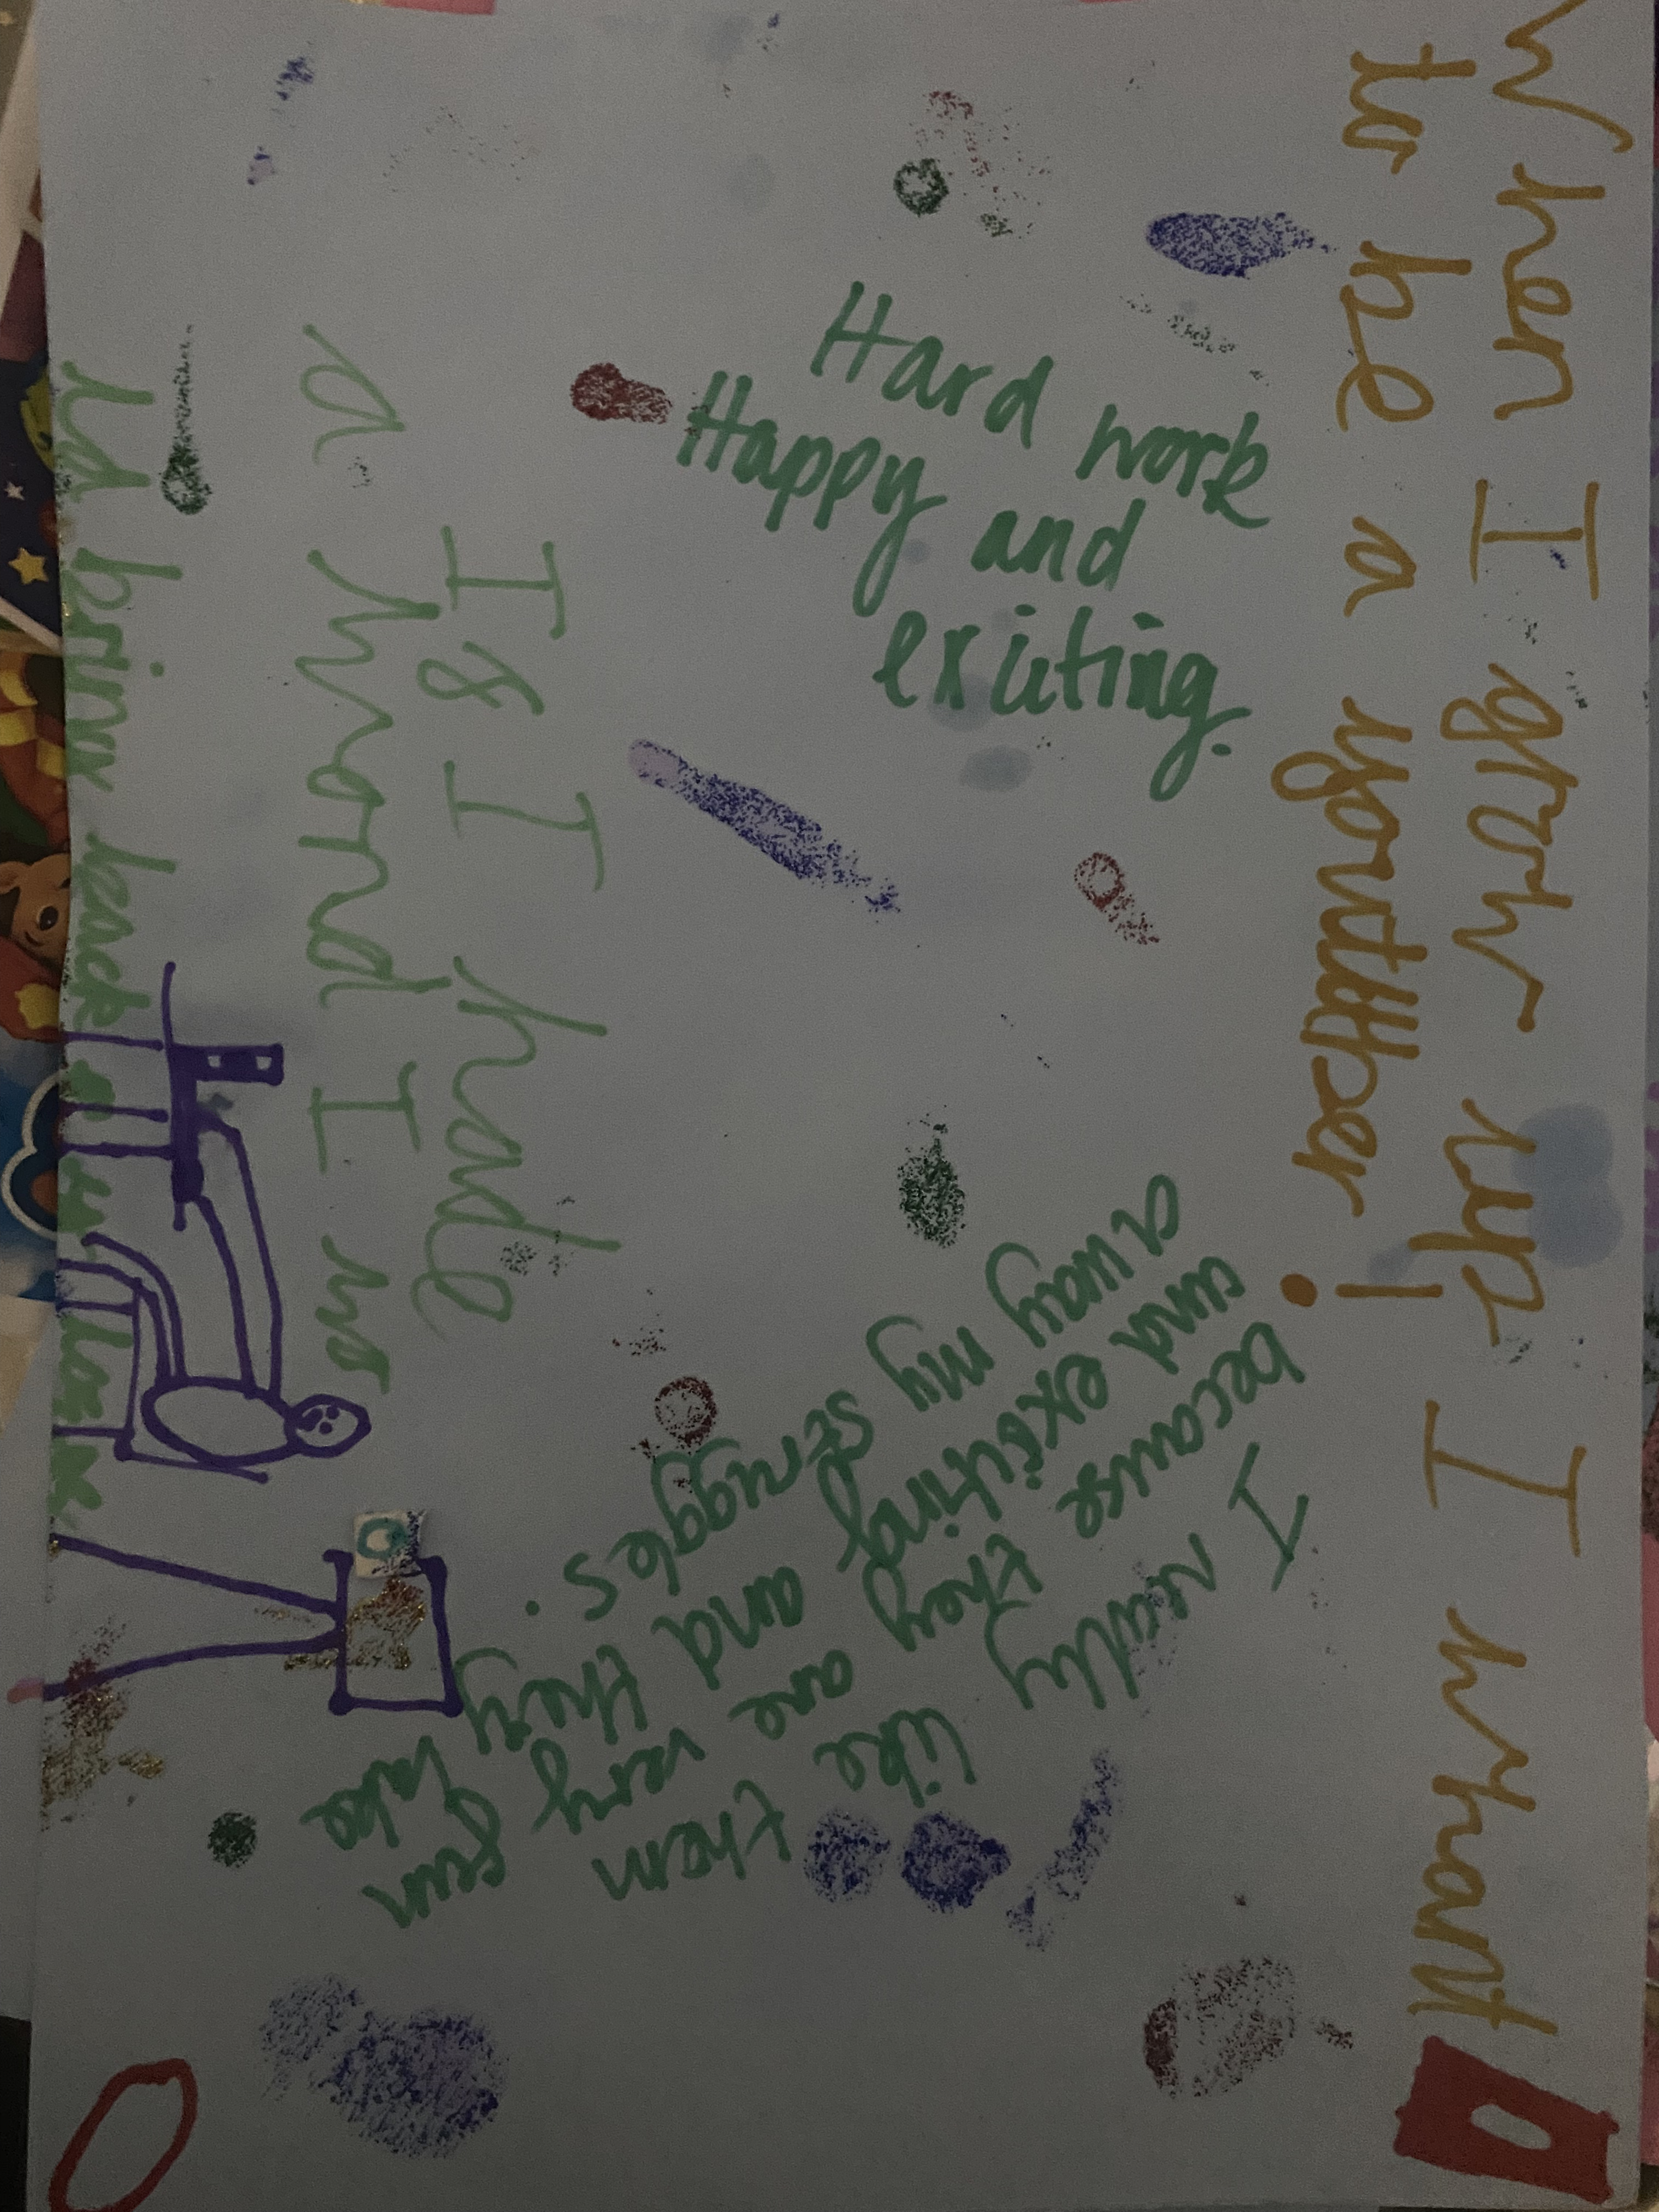 When I grow up I whant
to be a youttber!
Hard work
Happy and
exciting.
I really like them
because they are very fun
and exciting and they take
away my struggles.
If I hade
a whond I wo
ld bring back